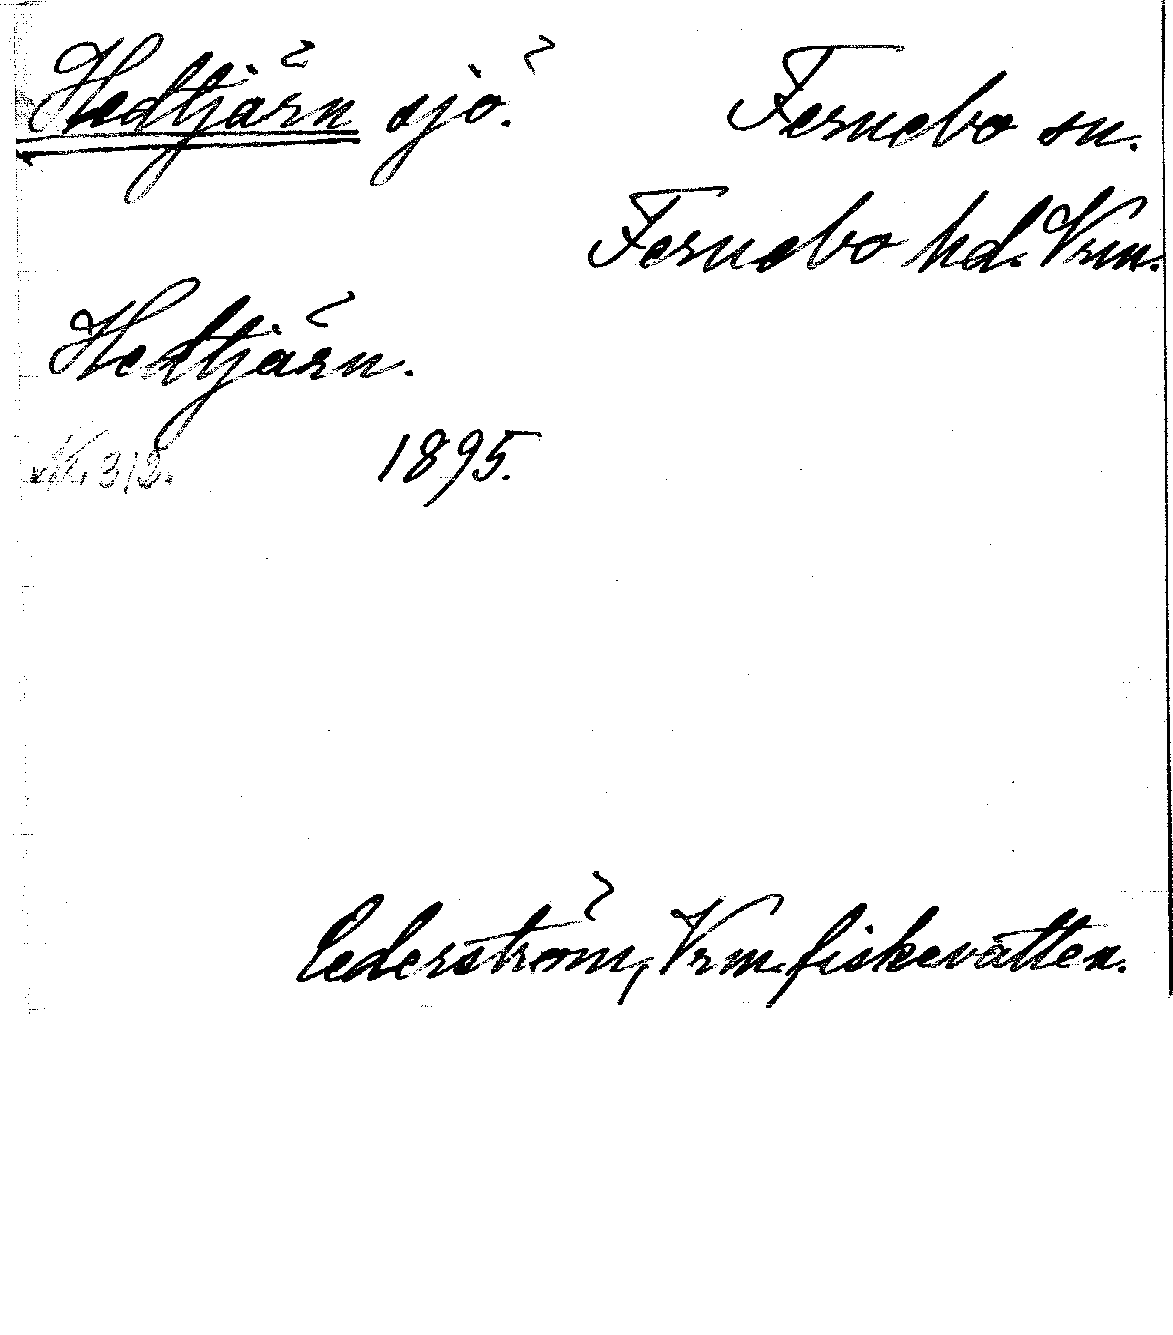 Hedtjärn sjö. Fernebo sn.
Fernebo hd. Vrm.
Hedtjärn.
Nr. 312. 1895.
Cederström, Vrm. fiskevatten.